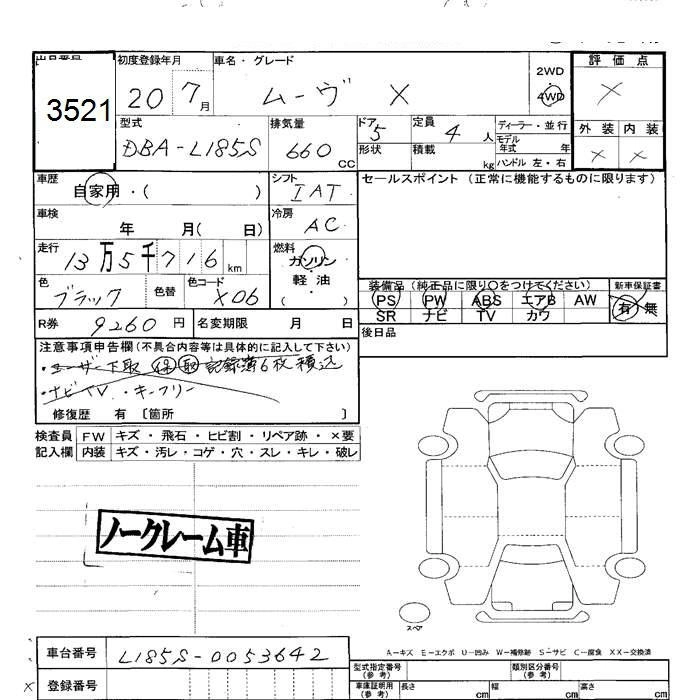 出品番号 初度登録年月 車名・グレード 2WD 評価点
3521 20 7月 ムーヴ X 4WD ×
型式 排気量 ドア 定員 ディーラー・並行 外装 内装
DBA-L185S 660cc 5 4人 モデル年式 年 × ×
形状 積載 kg ハンドル 左・右
車歴 自家用・( ) シフト IAT セールスポイント (正常に機能するものに限ります)
車検 年 月(日) 冷房 AC
走行 13万5千716km 燃料 ガソリン・軽油・( )
色 ブラック 色替 色コード X06 装備品 (純正品に限り○をつけてください) 新車保証書
PS PW ABS エアB AW 有・無
SR ナビ TV カワ
R券 9260円 名変期限 月 日 後日品
注意事項申告欄(不具合内容等は具体的に記入して下さい)
・ユーザー下取 保 取 記録簿6枚積込
・ナビTV ・キーフリー
修復歴 有 〔箇所 〕
検査員 FW キズ・飛石・ヒビ割・リペア跡・×要
記入欄 内装 キズ・汚レ・コゲ・穴・スレ・キレ・破レ
ノークレーム車
スペア
A-キズ E-エクボ U-凹み W-補修跡 S-サビ C-腐食 XX-交換済
車台番号 L185S-0053642 型式指定番号(参考) 類別区分番号(参考)
× 登録番号 車庫証明用(参考) 長さ cm 幅 cm 高さ cm